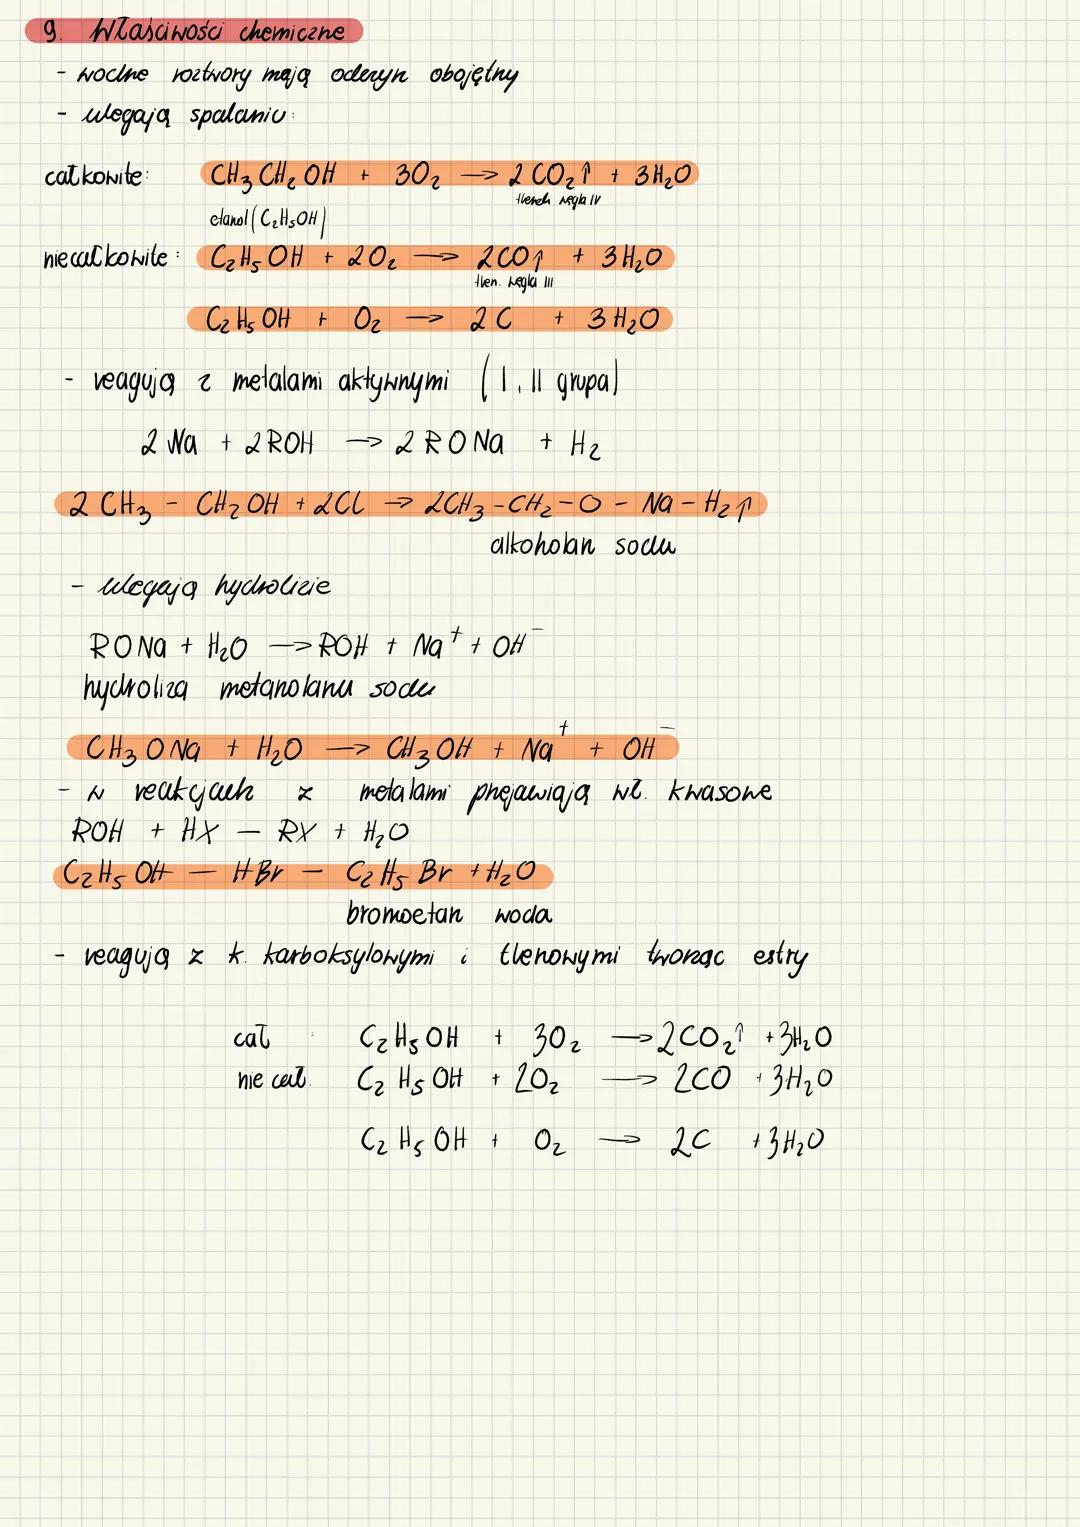 9. Właściwości chemiczne
- wodne roztwory mają odczyn obojętny
- ulegają spalaniu:
całkowite: CH₃CH₂OH + 3O₂ → 2CO₂↑ + 3H₂O
tlenek węgla IV
etanol (C₂H₅OH)
niecałkowite: C₂H₅OH + 2O₂ → 2CO↑ + 3H₂O
tlen. węgla III
C₂H₅OH + O₂ → 2C + 3H₂O
- reagują z metalami aktywnymi (I, II grupa)
2Na + 2ROH → 2RONa + H₂
2CH₃ - CH₂OH + 2Cl → 2CH₃-CH₂-O-Na-H₂↑
alkoholan sodu
- ulegają hydrolizie
RONa + H₂O → ROH + Na⁺ + OH⁻
hydroliza metanolanu sodu
CH₃ONa + H₂O → CH₃OH + Na⁺ + OH⁻
- w reakcjach z metalami przejawiają wł. kwasowe
ROH + HX — RX + H₂O
C₂H₅OH — HBr — C₂H₅Br + H₂O
bromoetan woda
- reagują z k. karboksylowymi i tlenowymi tworząc estry
cał : C₂H₅OH + 3O₂ → 2CO₂↑ + 3H₂O
nie cał. C₂H₅OH + 2O₂ → 2CO + 3H₂O
C₂H₅OH + O₂ → 2C + 3H₂O